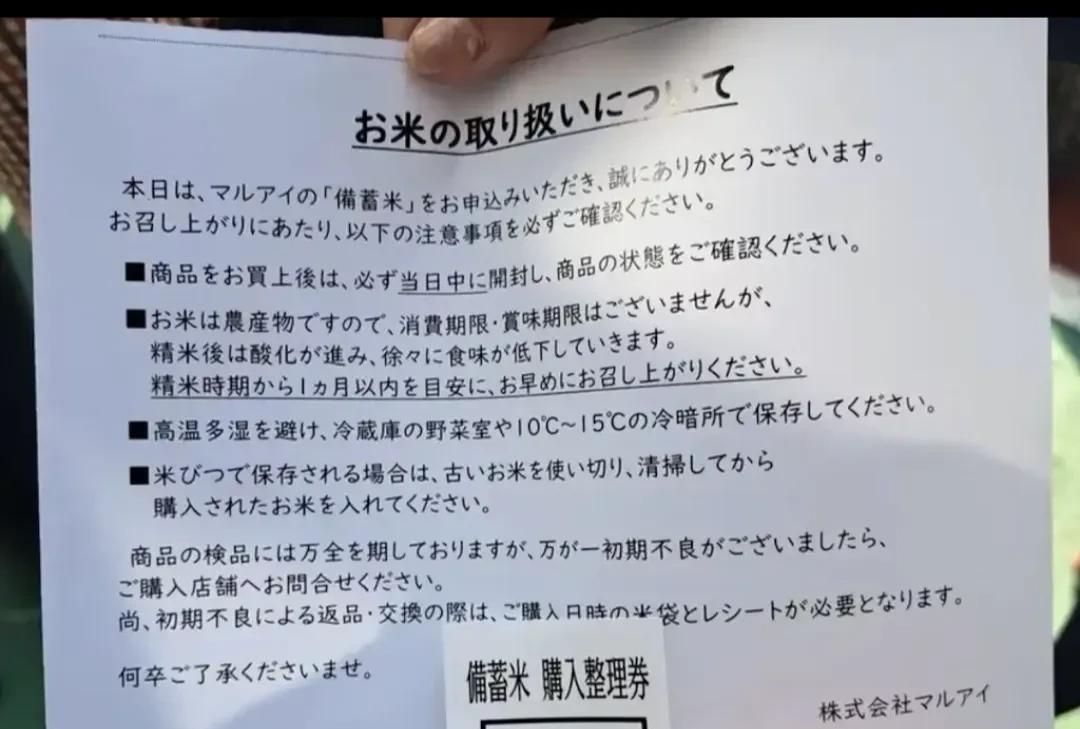 お米の取り扱いについて
本日は、マルアイの「備蓄米」をお申込みいただき、誠にありがとうございます。
お召し上がりにあたり、以下の注意事項を必ずご確認ください。
■商品をお買上後は、必ず当日中に開封し、商品の状態をご確認ください。
■お米は農産物ですので、消費期限・賞味期限はございませんが、
精米後は酸化が進み、徐々に食味が低下していきます。
精米時期から1ヵ月以内を目安に、お早めにお召し上がりください。
■高温多湿を避け、冷蔵庫の野菜室や10℃~15℃の冷暗所で保存してください。
■米びつで保存される場合は、古いお米を使い切り、清掃してから
購入されたお米を入れてください。
商品の検品には万全を期しておりますが、万が一初期不良がございましたら、
ご購入店舗へお問合せください。
尚、初期不良による返品・交換の際は、ご購入日時の米袋とレシートが必要となります。
何卒ご了承くださいませ。
備蓄米 購入整理券
株式会社マルアイ